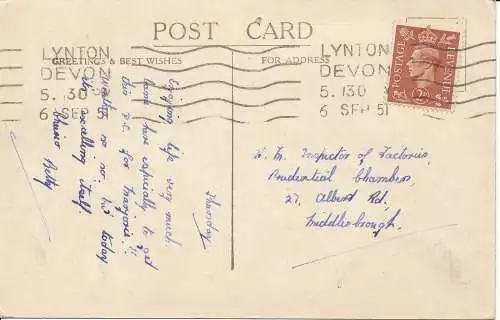 POST CARD
GREETINGS & BEST WISHES
FOR ADDRESS
LYNTON
DEVON
5. 30 PM
6 SEP 51
LYNTON
DEVON
5. 130 PM
6 SEP 51
POSTAGE
REVENUE
Thursday
Enjoying life very much.
Came here especially to get
this P.C. for Marjorie!!
Usually so so, but today
it's excelling itself.
Betty
H. M. Inspector of Factories,
Prudential Chambers,
27, Albert Rd,
Middlesbrough.